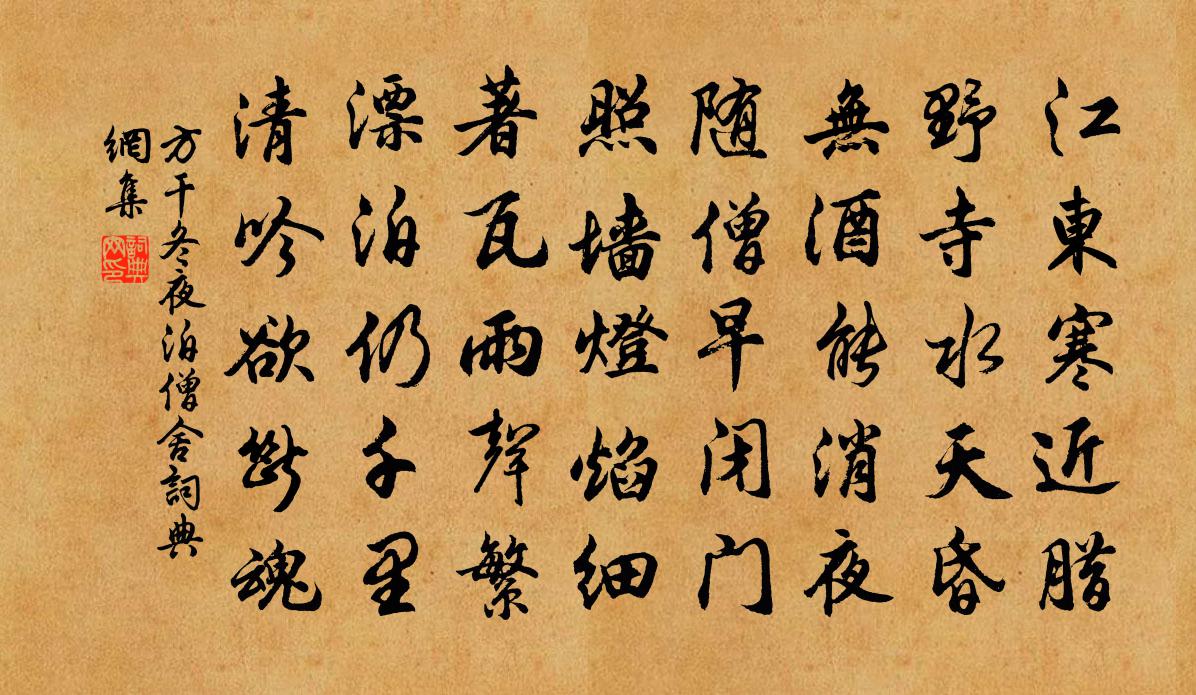 江東寒近腊
野寺水天昏
無酒能消夜
随僧早闭门
照墙燈焰细
著瓦雨聲繁
漂泊仍千里
清吟欲斷魂
方干冬夜泊僧舍詞典
網集
詞典
网印